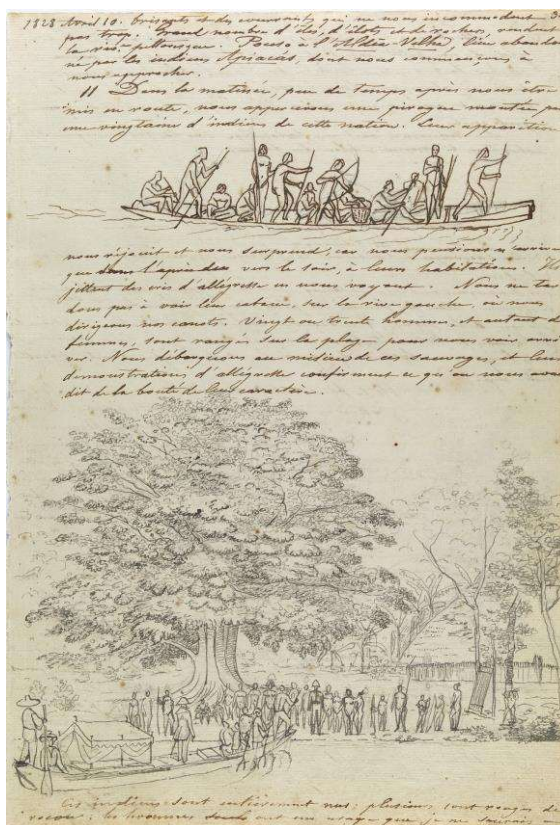 1828 Avril 10. brisants et des courants qui ne nous incommodent
pas trop. Grand nombre d'îles, d'îlots et de rochers, rendent
la riv. pittoresque. Pouso à l'Aldea Velha, lieu abando
né par les indiens Apiacás, dont nous commençons à
nous approcher.
11 Dans la matinée, peu de temps après nous être
mis en route, nous appercevons une pirogue montée p
une vingtaine d'indiens de cette nation. Leur apparition
nous réjouit et nous surprend, car nous pensions n'arriver
que dans l'après-dîner vers le soir, à leurs habitations. Ils
jettent des cris d'allégresse en nous voyant. Nous ne tar
dons pas à voir leur cabane, sur la rive gauche, où nous
dirigeons nos canots. Vingt ou trente hommes, et autant de
femmes, sont rangés sur la plage pour nous voir arri
ver. Nous débarquons au milieu de ces sauvages, et leurs
demonstrations d'allégresse confirment ce qu'on nous avait
dit de la bonté de leur caractère.
Ces indiens sont entièrement nus; plusieurs sont rouges de
rocou; les hommes seuls ont un usage que je ne saurais